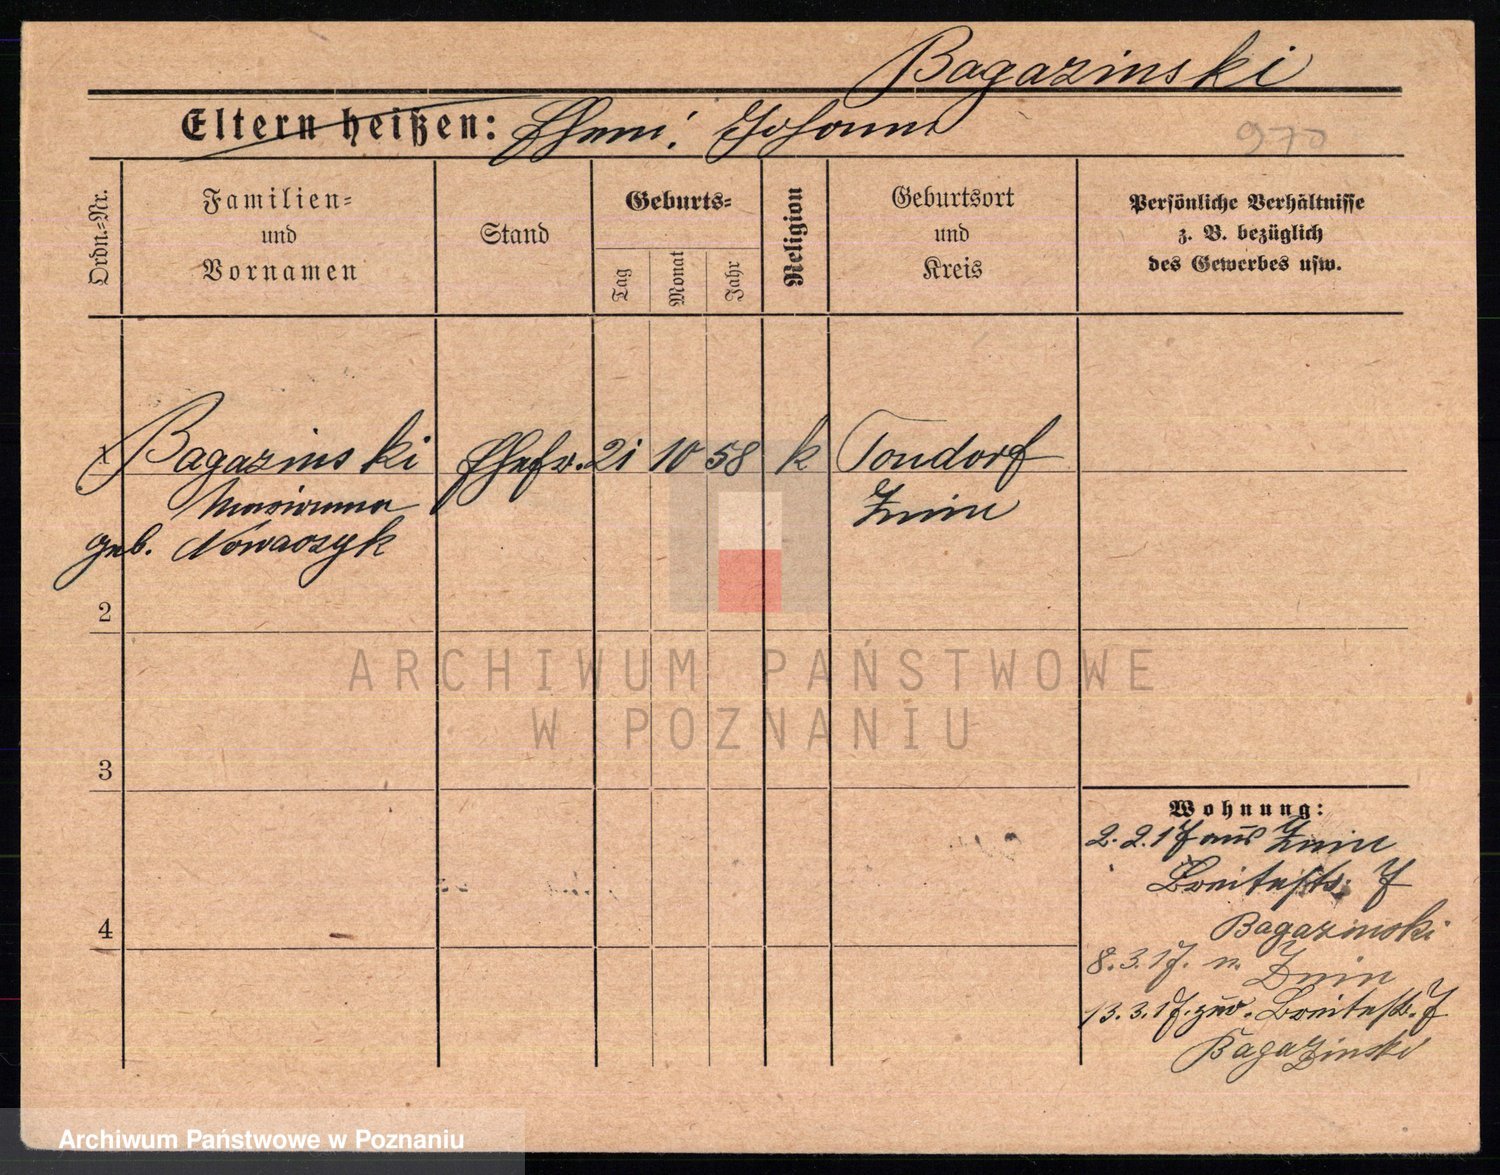 Bagazinski
Eltern heißen: Ehem: Johann
970
Ordn.-Nr.
Familien-
und
Vornamen
Stand
Geburts-
Tag
Monat
Jahr
Religion
Geburtsort
und
Kreis
Persönliche Verhältnisse
z. B. bezüglich
des Gewerbes usw.
1 Bagazinski Ehefr. 21 10 58 k Tondorf
Marianna Znin
geb. Nowaczyk
2
3
4
ARCHIWUM PAŃSTWOWE
W POZNANIU
Wohnung:
2.2.17 aus Znin
Breitestr. 7
Bagazinski
8.3.17. n. Znin
13.3.17. zur. Breitestr. 7
Bagazinski
Archiwum Państwowe w Poznaniu